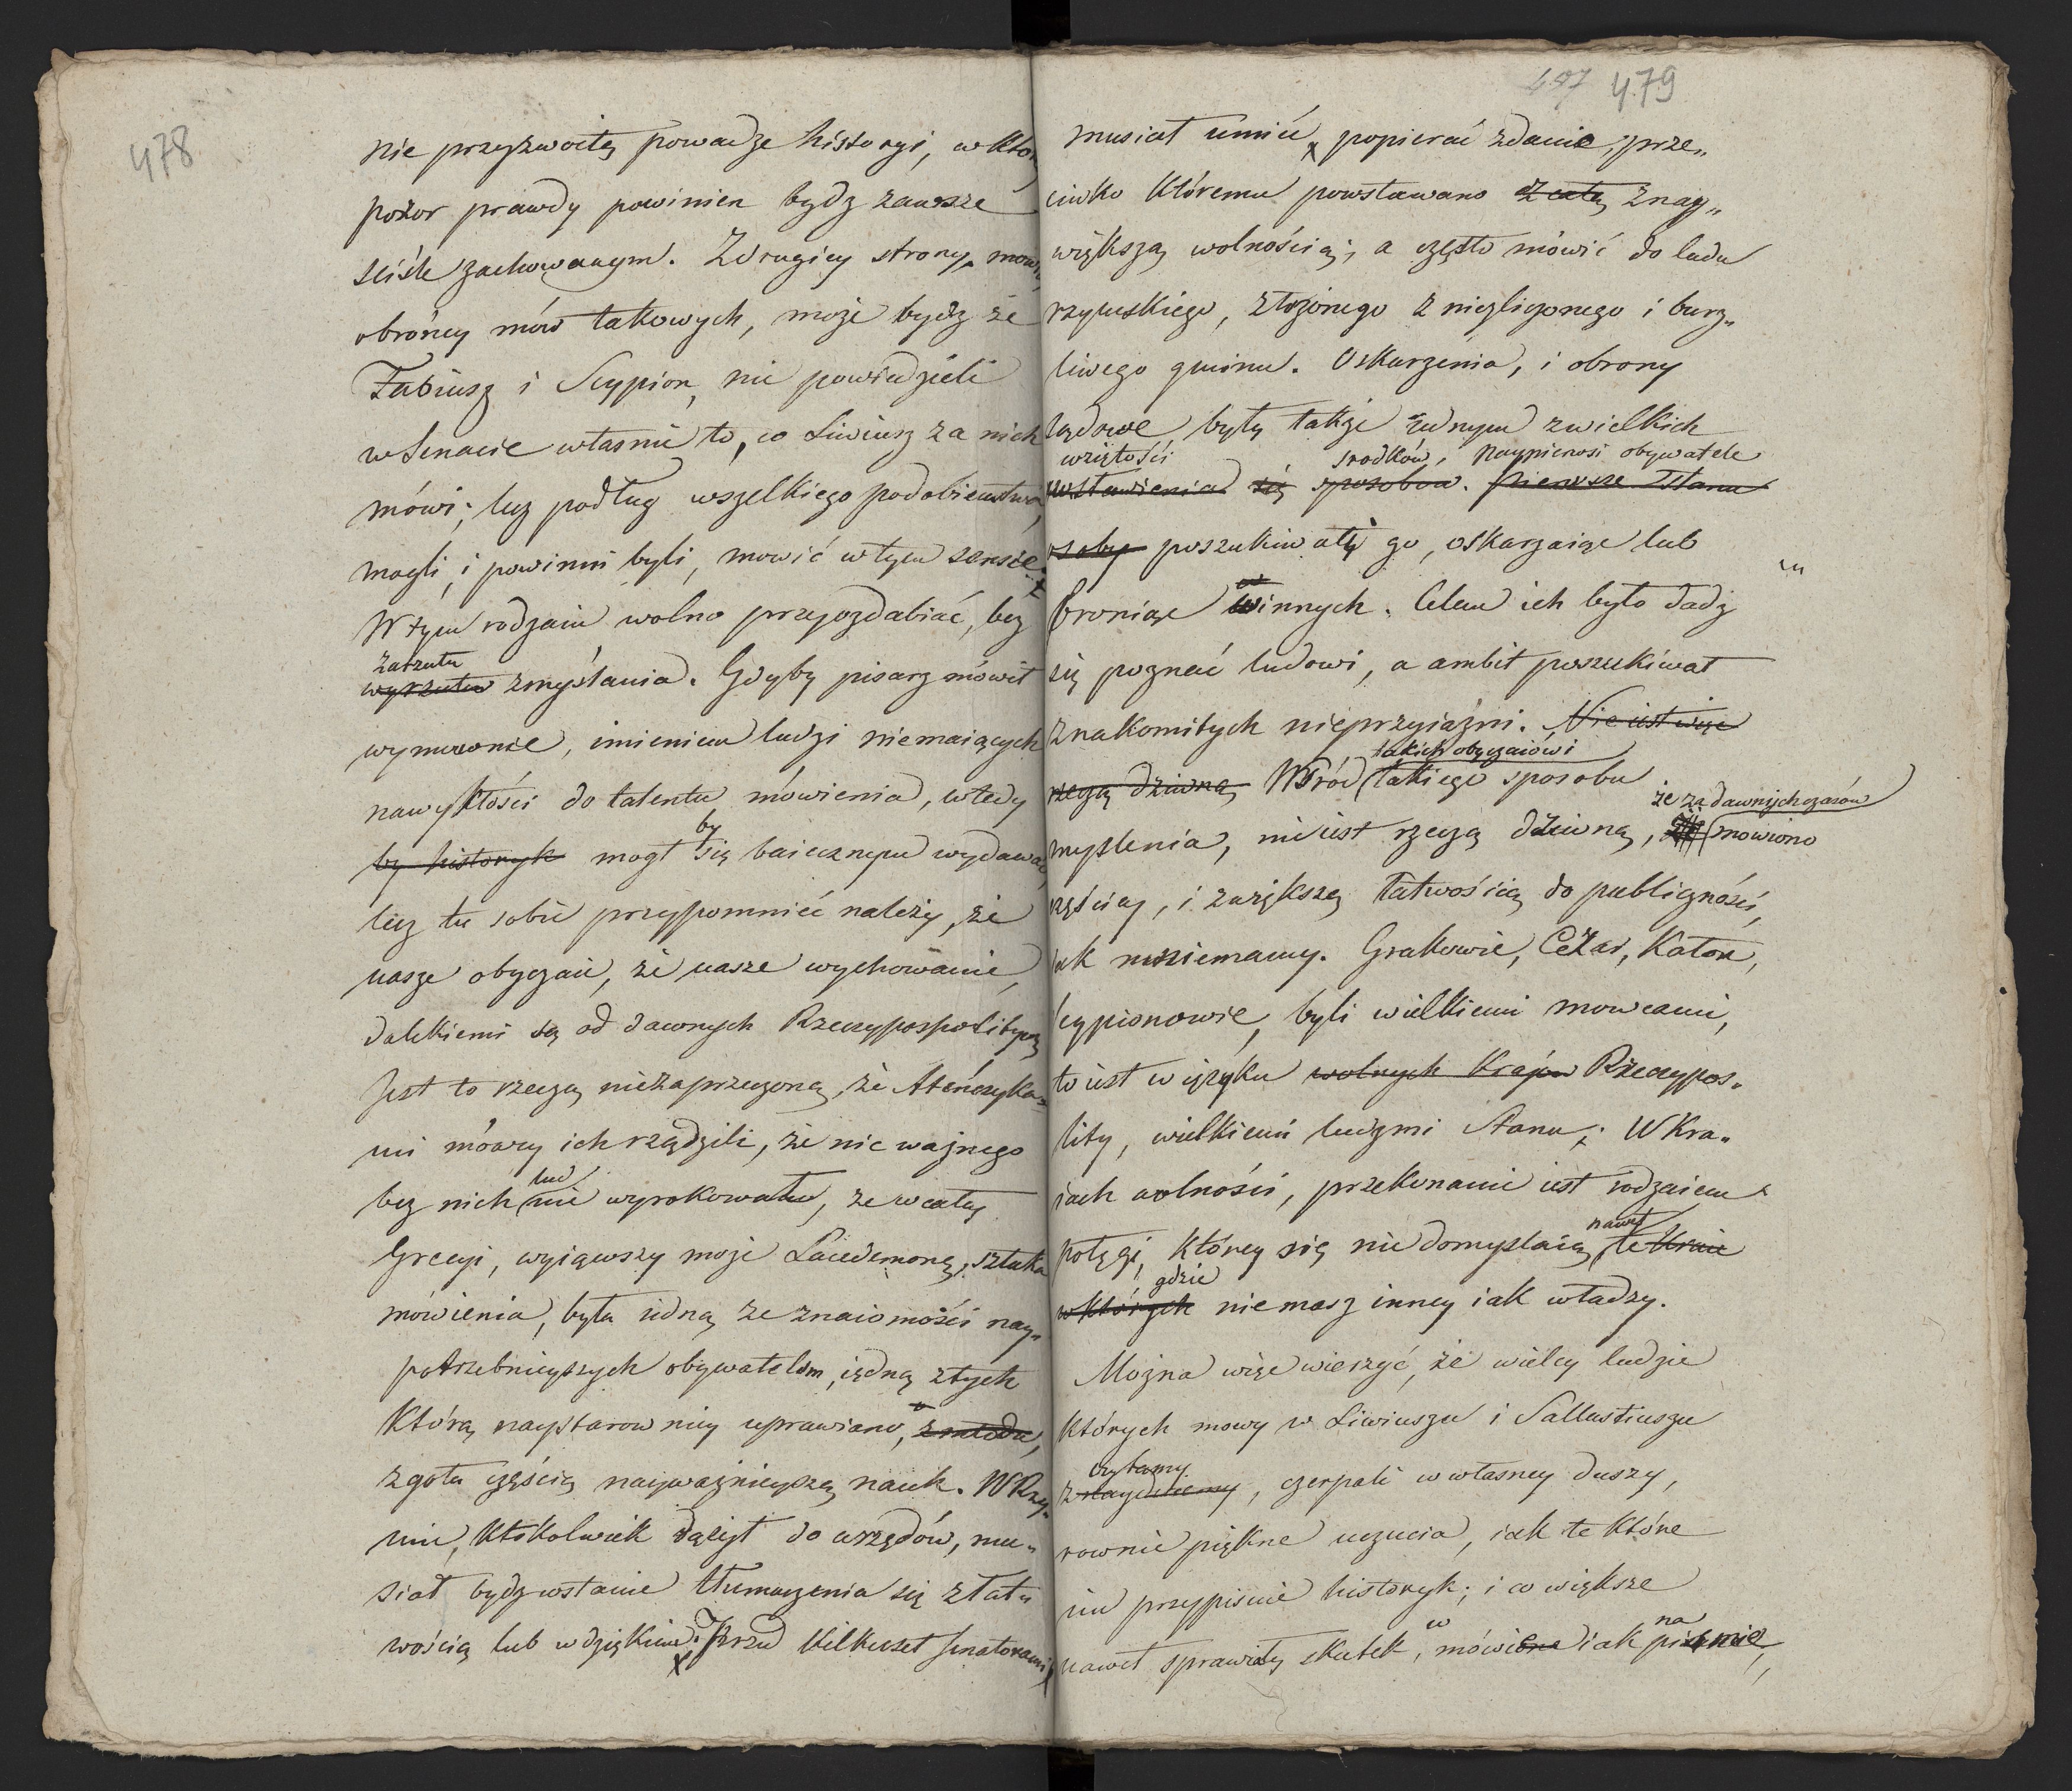 478
nie przyzwoitą powadze historyi, w któ
pozor prawdy powinien bydz zawsze
ściśle zachowanym. Z drugiey strony, mow
obrońcy mów takowych, może bydz że
Fabiusz i Scypion, nie powiedzieli
w Senacie własnie to, co Liwiusz za nich
mówi; lecz podług wszelkiego podobieństwa,
mogli, i powinni byli, mowić w tym sensie.
W tym rodzaiu wolno przyozdabiać, bez
zarzutu
wyrzutu zmyślania. Gdyby pisarz mówił
wymownie, imieniem ludzi niemaiących
nawykłości do talentu mówienia, wtedy
by
by historyk mogł się baiecznym wydawać,
lecz tu sobie przypomnieć należy, że
nasze obyczaie, że nasze wychowanie,
dalekiemi są od dawnych Rzeczypospolitych,
Jest to rzeczą niezaprzeczoną, że Ateńczyka-
mi mówcy ich rządzili, że nic ważnego
lud
bez nich nie wyrokował, że w całey
Grecyi, wyiąwszy może Lacedemonę, sztuka
mówienia, była iedną ze znaiomości nay„
potrzebnieyszych obywatelom, iedną z tych
którą naystarowniey uprawiano, z młodu,
zgoła częścią nayważnieyszą nauk. W Rzy„
mie, ktokolwiek dążył do urzędów, mu„
siał bydz wstanie tłumaczenia się z łat„
wością lub wdziękiem; Przed kilkuset senatorami
497 479
musiał umieć popierać zdanie, prze„
ciwko któremu powstawano z całą z nay„
większą wolnością; a często mówić do ludu
rzymskiego, złożonego z niezliczonego i burz„
liwego gminu. Oskarżenia, i obrony
sądowe były także iednym z wielkich
wziętości srodków, Naypierwsi obywatele
wsławienia się sposobow. Pierwsze Stanu
osoby poszukiwali go, oskarżaiąc lub
broniąc winnych. Celem ich było dadz
się poznać ludowi, a ambit poszukiwał
znakomitych nieprzyiaźni. Nie iest więc
takich obyczaiów i
rzeczą dziwną Wśród takiego sposobu
że za dawnych czasów
myslenia, nie iest rzeczą dziwną, że mowiono
częściey, i z większą łatwością do publiczności,
iak mniemamy. Grakowie, Cezar, Katon,
Scypionowie, byli wielkiemi mowcami,
to iest w ięzyku wolnych Kraiów Rzeczypos„
lity, wielkiemi ludzmi Stanu; W Kra„
iach wolności, przekonanie iest rodzaiem
nawet
potęgi, którey się nie domyslaią te kraie
gdzie
w których nie masz inney iak władzy.
Można więc wierzyć, że wielcy ludzie
których mowy w Liwiuszu i Sallustiuszu
czytamy
znayduiemy, czerpali w własney duszy,
rownie piękne uczucia, iak te które
im przypisuie historyk; i co większe
w na
nawet sprawiały skutek, mówione iak pismie,